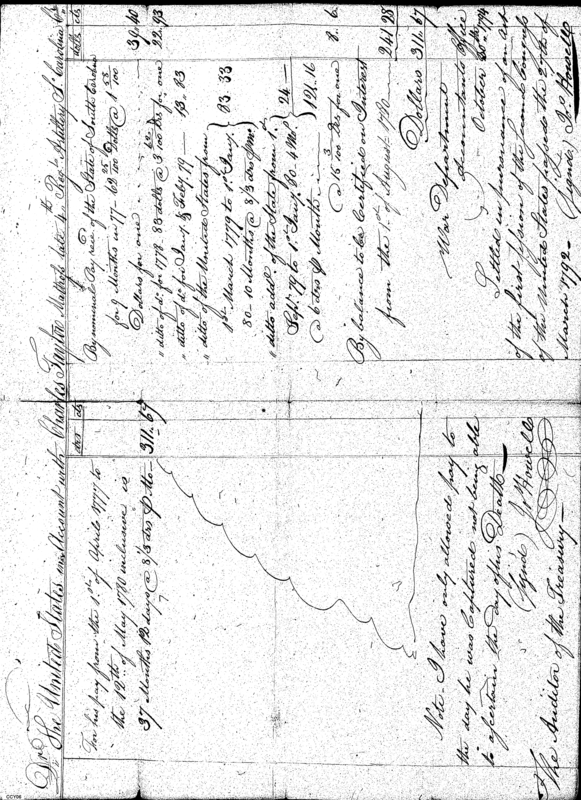 Drs The United States in Account with Charles Taylor Matross late 4th Regt Artillery So Carolina Crs
drs cts
For his pay from the 1st of April 1777 to
the 12th of May 1780 inclusive is
37 Months 12 days @ 8⅓ drs P Mo — 311.67
Note. I have only allowed pay to
the day he was Captured not being able
to ascertain the day of his Death —
Signd Js Howell
The Auditor of the Treasury —
dolls cts
By nominal Pay recd of the State of South Carolina
for 9 Months in 77 - 69 Dolls @ 1
Dollars for one 39.40
" ditto of do for 1778 83 dolls @ 3 drs for one 22.93
" ditto of do for Jany & Feby 79 — 13.33
" ditto of the United States from
1st March 1779 to 1st Jany
80 - 10 Months @ 8⅓ drs P Mo 83.33
" ditto addl. of the State from 1st
Sept. 79 to 1st Jany. 80. 4 Mos.
@ 6 drs P Month 24 —
191.16
@ 3 drs for one 2. 6.
By balance to be Certified on Interest
from the 1st of August 1780 — 241.28
Dollars 311.67
War Department
Accountants Office
October 20th 1794
Settled in pursuance of an act
of the first Session of the Second Congress
of the United States passed the 27th of
March 1792 —
(Signd) Js Howell
CCY06